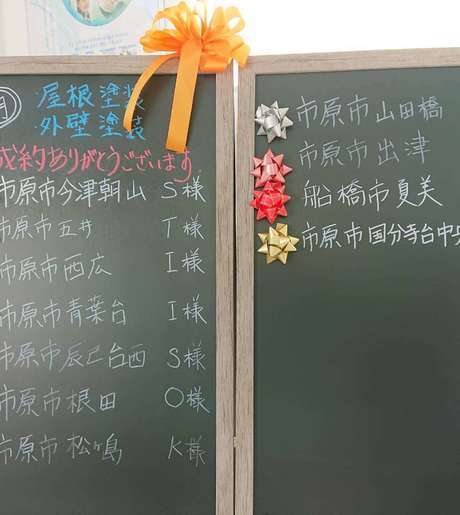 月
屋根塗装
外壁塗装
成約ありがとうございます
市原市今津朝山 S様
市原市五井 T様
市原市西広 I様
市原市青葉台 I様
市原市辰巳台西 S様
市原市根田 O様
市原市松ヶ島 K様
市原市山田橋
市原市出津
船橋市夏美
市原市国分寺台中央